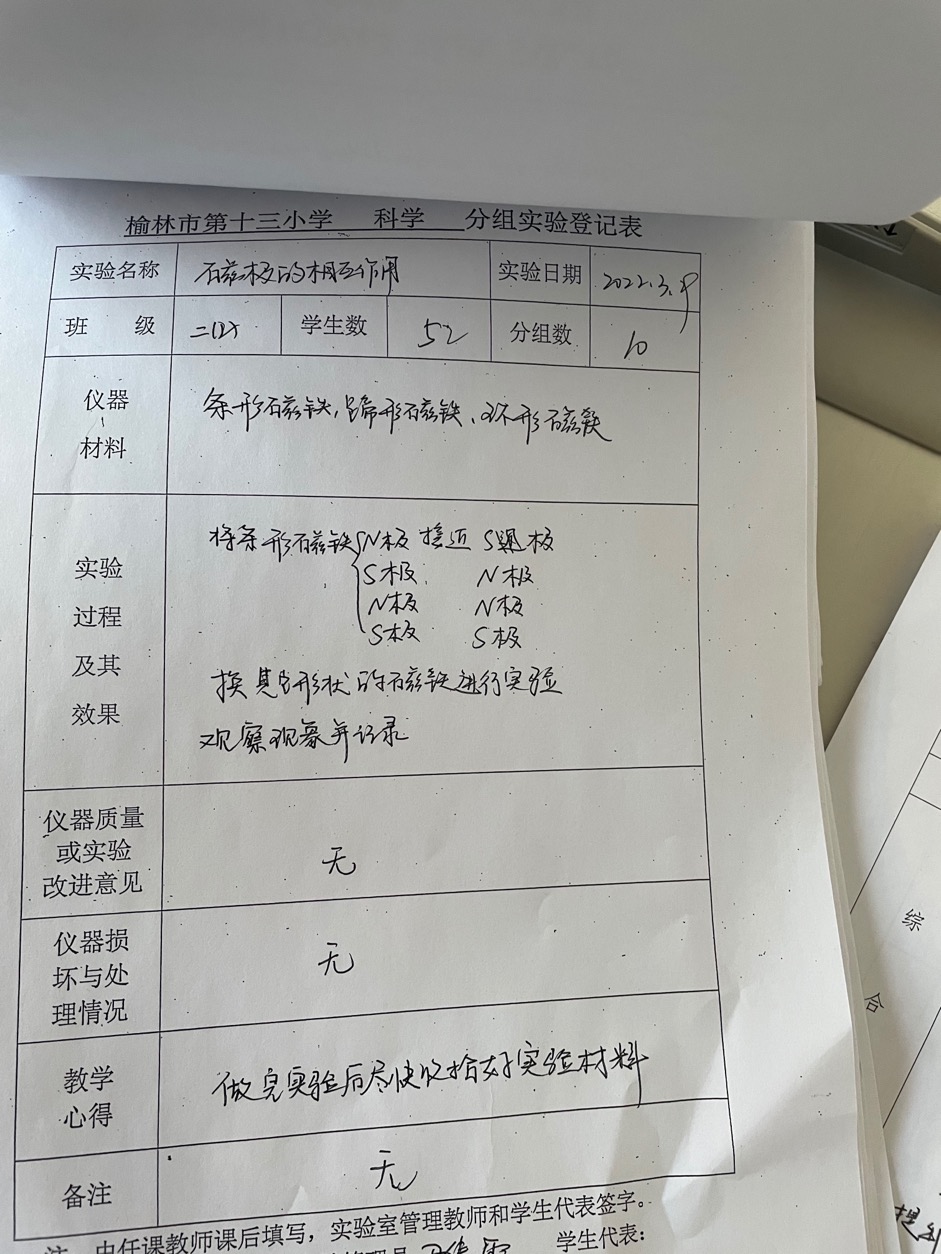 榆林市第十三小学 科学 分组实验登记表
实验名称 磁极的相互作用 实验日期 2022.3.9
班 级 二(2) 学生数 52 分组数 10
仪器、材料
条形磁铁,蹄形磁铁、环形磁铁
实验过程及其效果
将条形磁铁{N极 接近 S极
S极 N极
N极 N极
S极 S极
换其它形状的磁铁进行实验
观察现象并记录
仪器质量
或实验
改进意见
无
仪器损
坏与处
理情况
无
教学
心得
做完实验后尽快收拾好实验材料
备注 无
由任课教师课后填写,实验室管理教师和学生代表签字。
学生代表:
综
合